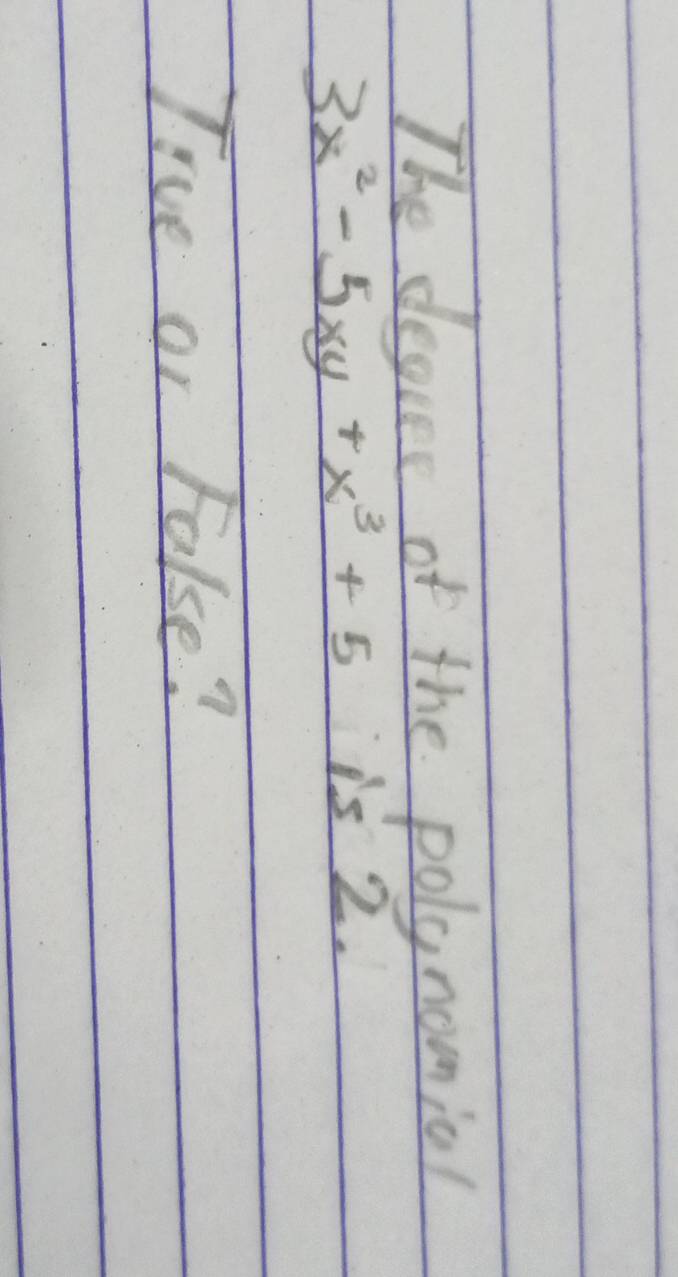 The degree of the polynomial
3x² - 5xy + x³ + 5 is 2.
True or False?